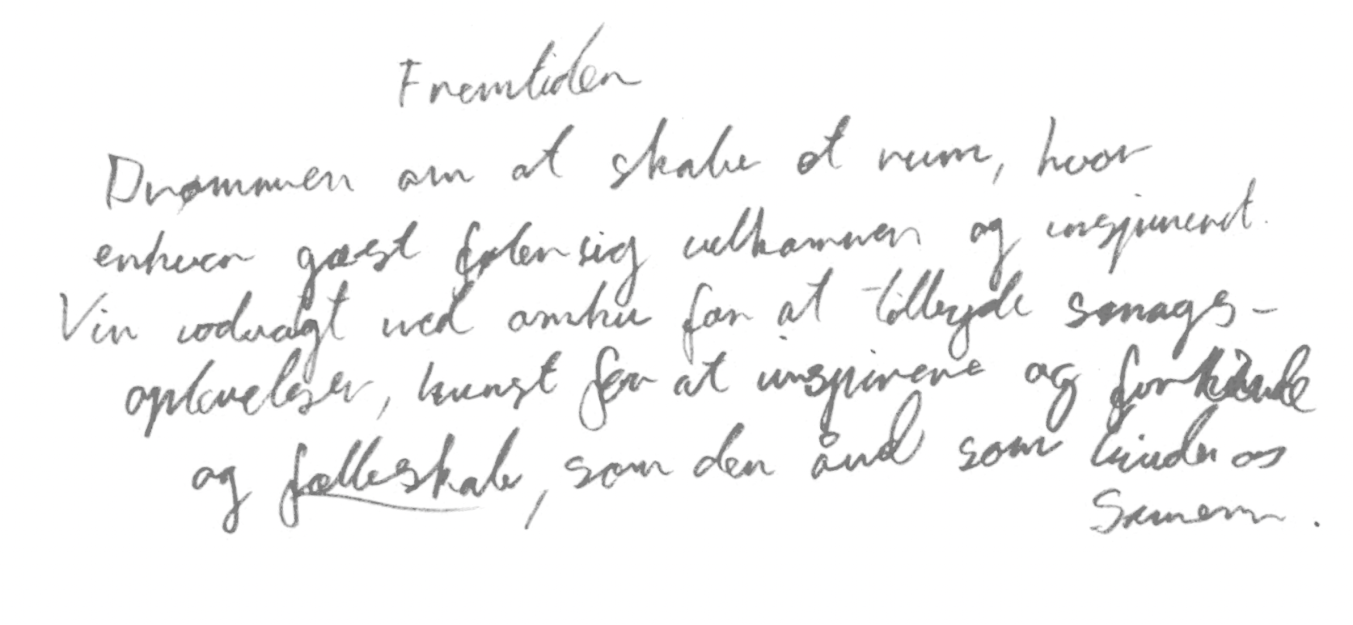 Fremtiden
Drømmen om at skabe et rum, hvor
enhver gæst føler sig velkommen og inspireret.
Vin udvalgt med omhu for at tilbyde smags-
oplevelser, kunst for at inspirere og forbinde
og fællesskab, som den ånd som binder os
sammen.